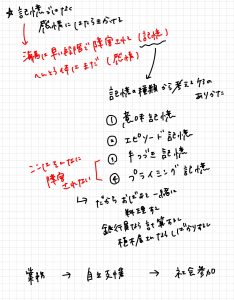 ☆ 記憶ではなく
感情にはたらきかける
海馬に早い段階で障害される (記憶)
へんとう体はまだ (感情)
記憶の種類から考えるケアの
ありかた
① 意味記憶
② エピソード記憶
③ 手つづき記憶
④ プライミング記憶
ここはそんなに
障害
されない
だから おばあと一緒に
料理する
銀行員なら計算するとか
植木屋さんなら しばかりするとか
業務 → 自立支援 → 社会参加